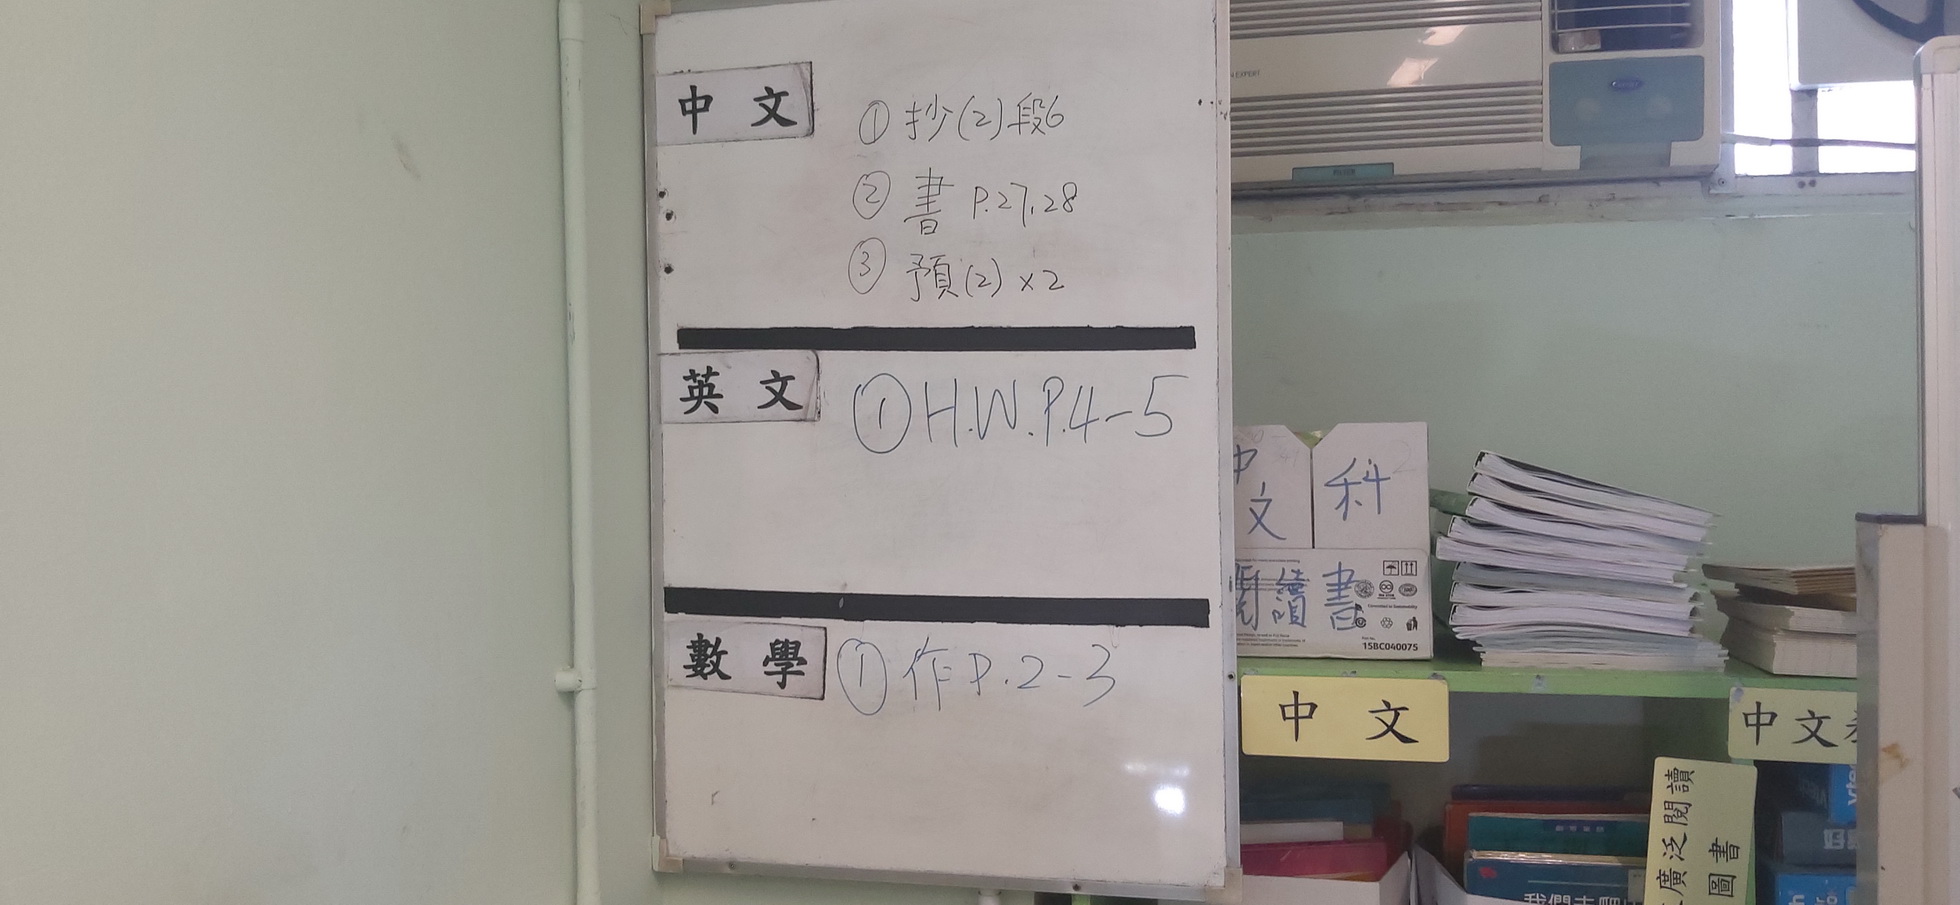 中 文
① 抄(2)段6
② 書 P.27,28
③ 預(2) x2
英 文
① H.W. P.4-5
數 學
① 作 P.2-3
中 科
文
閱讀書
15BC040075
中 文
中文
廣泛閱讀
圖書